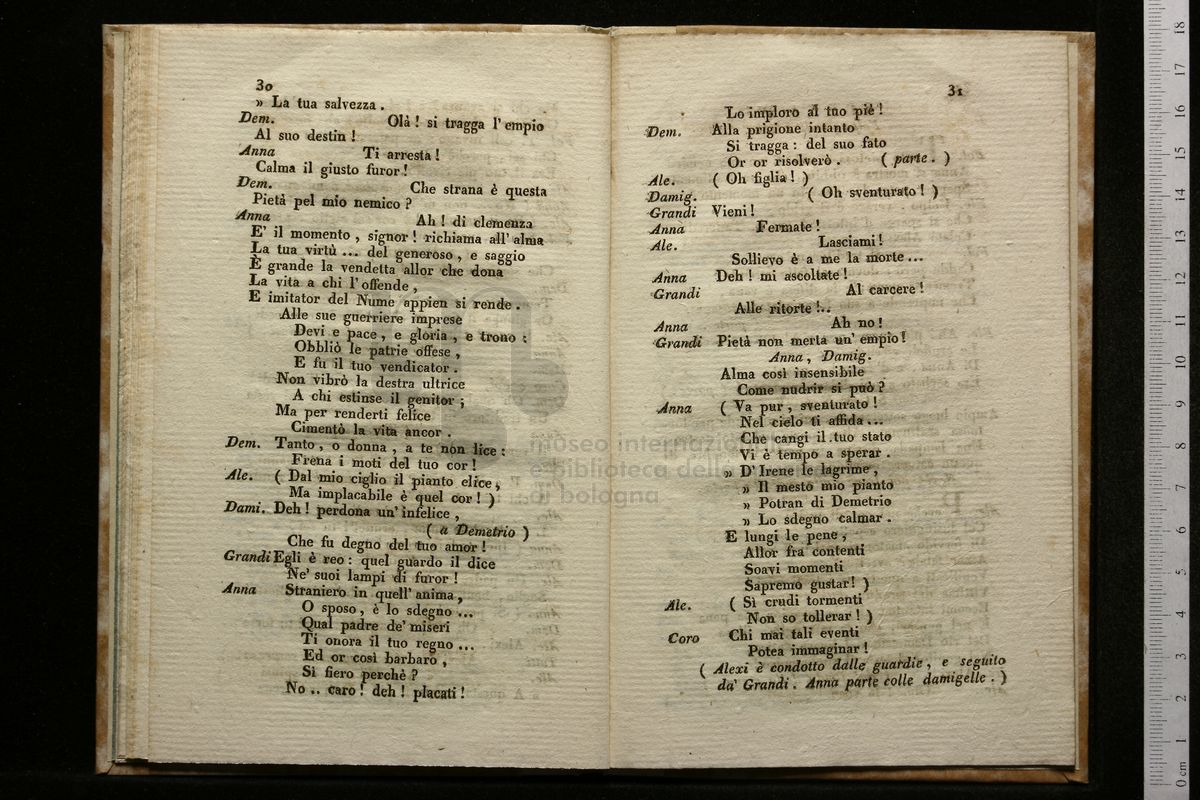 30
» La tua salvezza .
Dem. Olà ! si tragga l' empio
Al suo destin !
Anna Ti arresta !
Calma il giusto furor !
Dem. Che strana è questa
Pietà pel mio nemico ?
Anna Ah ! di clemenza
E' il momento , signor ! richiama all' alma
La tua virtù ... del generoso , e saggio
È grande la vendetta allor che dona
La vita a chi l' offende ,
E imitator del Nume appien si rende .
Alle sue guerriere imprese
Devi e pace , e gloria , e trono :
Obbliò le patrie offese ,
E fu il tuo vendicator .
Non vibrò la destra ultrice
A chi estinse il genitor ;
Ma per renderti felice
Cimentò la vita ancor .
Dem. Tanto , o donna , a te non lice :
Frena i moti del tuo cor !
Ale. ( Dal mio ciglio il pianto elice ,
Ma implacabile è quel cor ! )
Dami. Deh ! perdona un' infelice ,
( a Demetrio )
Che fu degno del tuo amor !
Grandi Egli è reo : quel guardo il dice
Ne' suoi lampi di furor !
Anna Straniero in quell' anima ,
O sposo , è lo sdegno ...
Qual padre de' miseri
Ti onora il tuo regno ...
Ed or così barbaro ,
Sì fiero perchè ?
No .. caro ! deh ! placati !
31
Lo imploro al tuo piè !
Dem. Alla prigione intanto
Si tragga : del suo fato
Or or risolverò . ( parte . )
Ale. ( Oh figlia ! )
Damig. ( Oh sventurato ! )
Grandi Vieni !
Anna Fermate !
Ale. Lasciami !
Sollievo è a me la morte ...
Anna Deh ! mi ascoltate !
Grandi Al carcere !
Alle ritorte !..
Anna Ah no !
Grandi Pietà non merta un' empio !
Anna , Damig.
Alma così insensibile
Come nudrir si può ?
Anna ( Va pur , sventurato !
Nel cielo ti affida ...
Che cangi il tuo stato
Vi è tempo a sperar .
» D' Irene le lagrime ,
» Il mesto mio pianto
» Potran di Demetrio
» Lo sdegno calmar .
E lungi le pene ,
Allor fra contenti
Soavi momenti
Sapremo gustar ! )
Ale. ( Sì crudi tormenti
Non so tollerar ! )
Coro Chi mai tali eventi
Potea immaginar !
( Alexi è condotto dalle guardie , e seguito
da' Grandi . Anna parte colle damigelle . )
museo internazional
e biblioteca dell
di bologna
0 cm 1 2 3 4 5 6 7 8 9 10 11 12 13 14 15 16 17 18